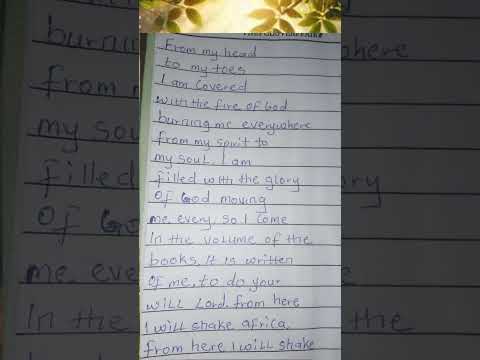 From my head
to my toes
I am Covered
with the fire of God
burning me everywhere
from my spirit to
my soul. I am
filled with the glory
Of God moving
me every, so I Come
In the volume of the
books, It is written
Of me, to do your
will Lord, from here
I will shake africa,
from here I will shake